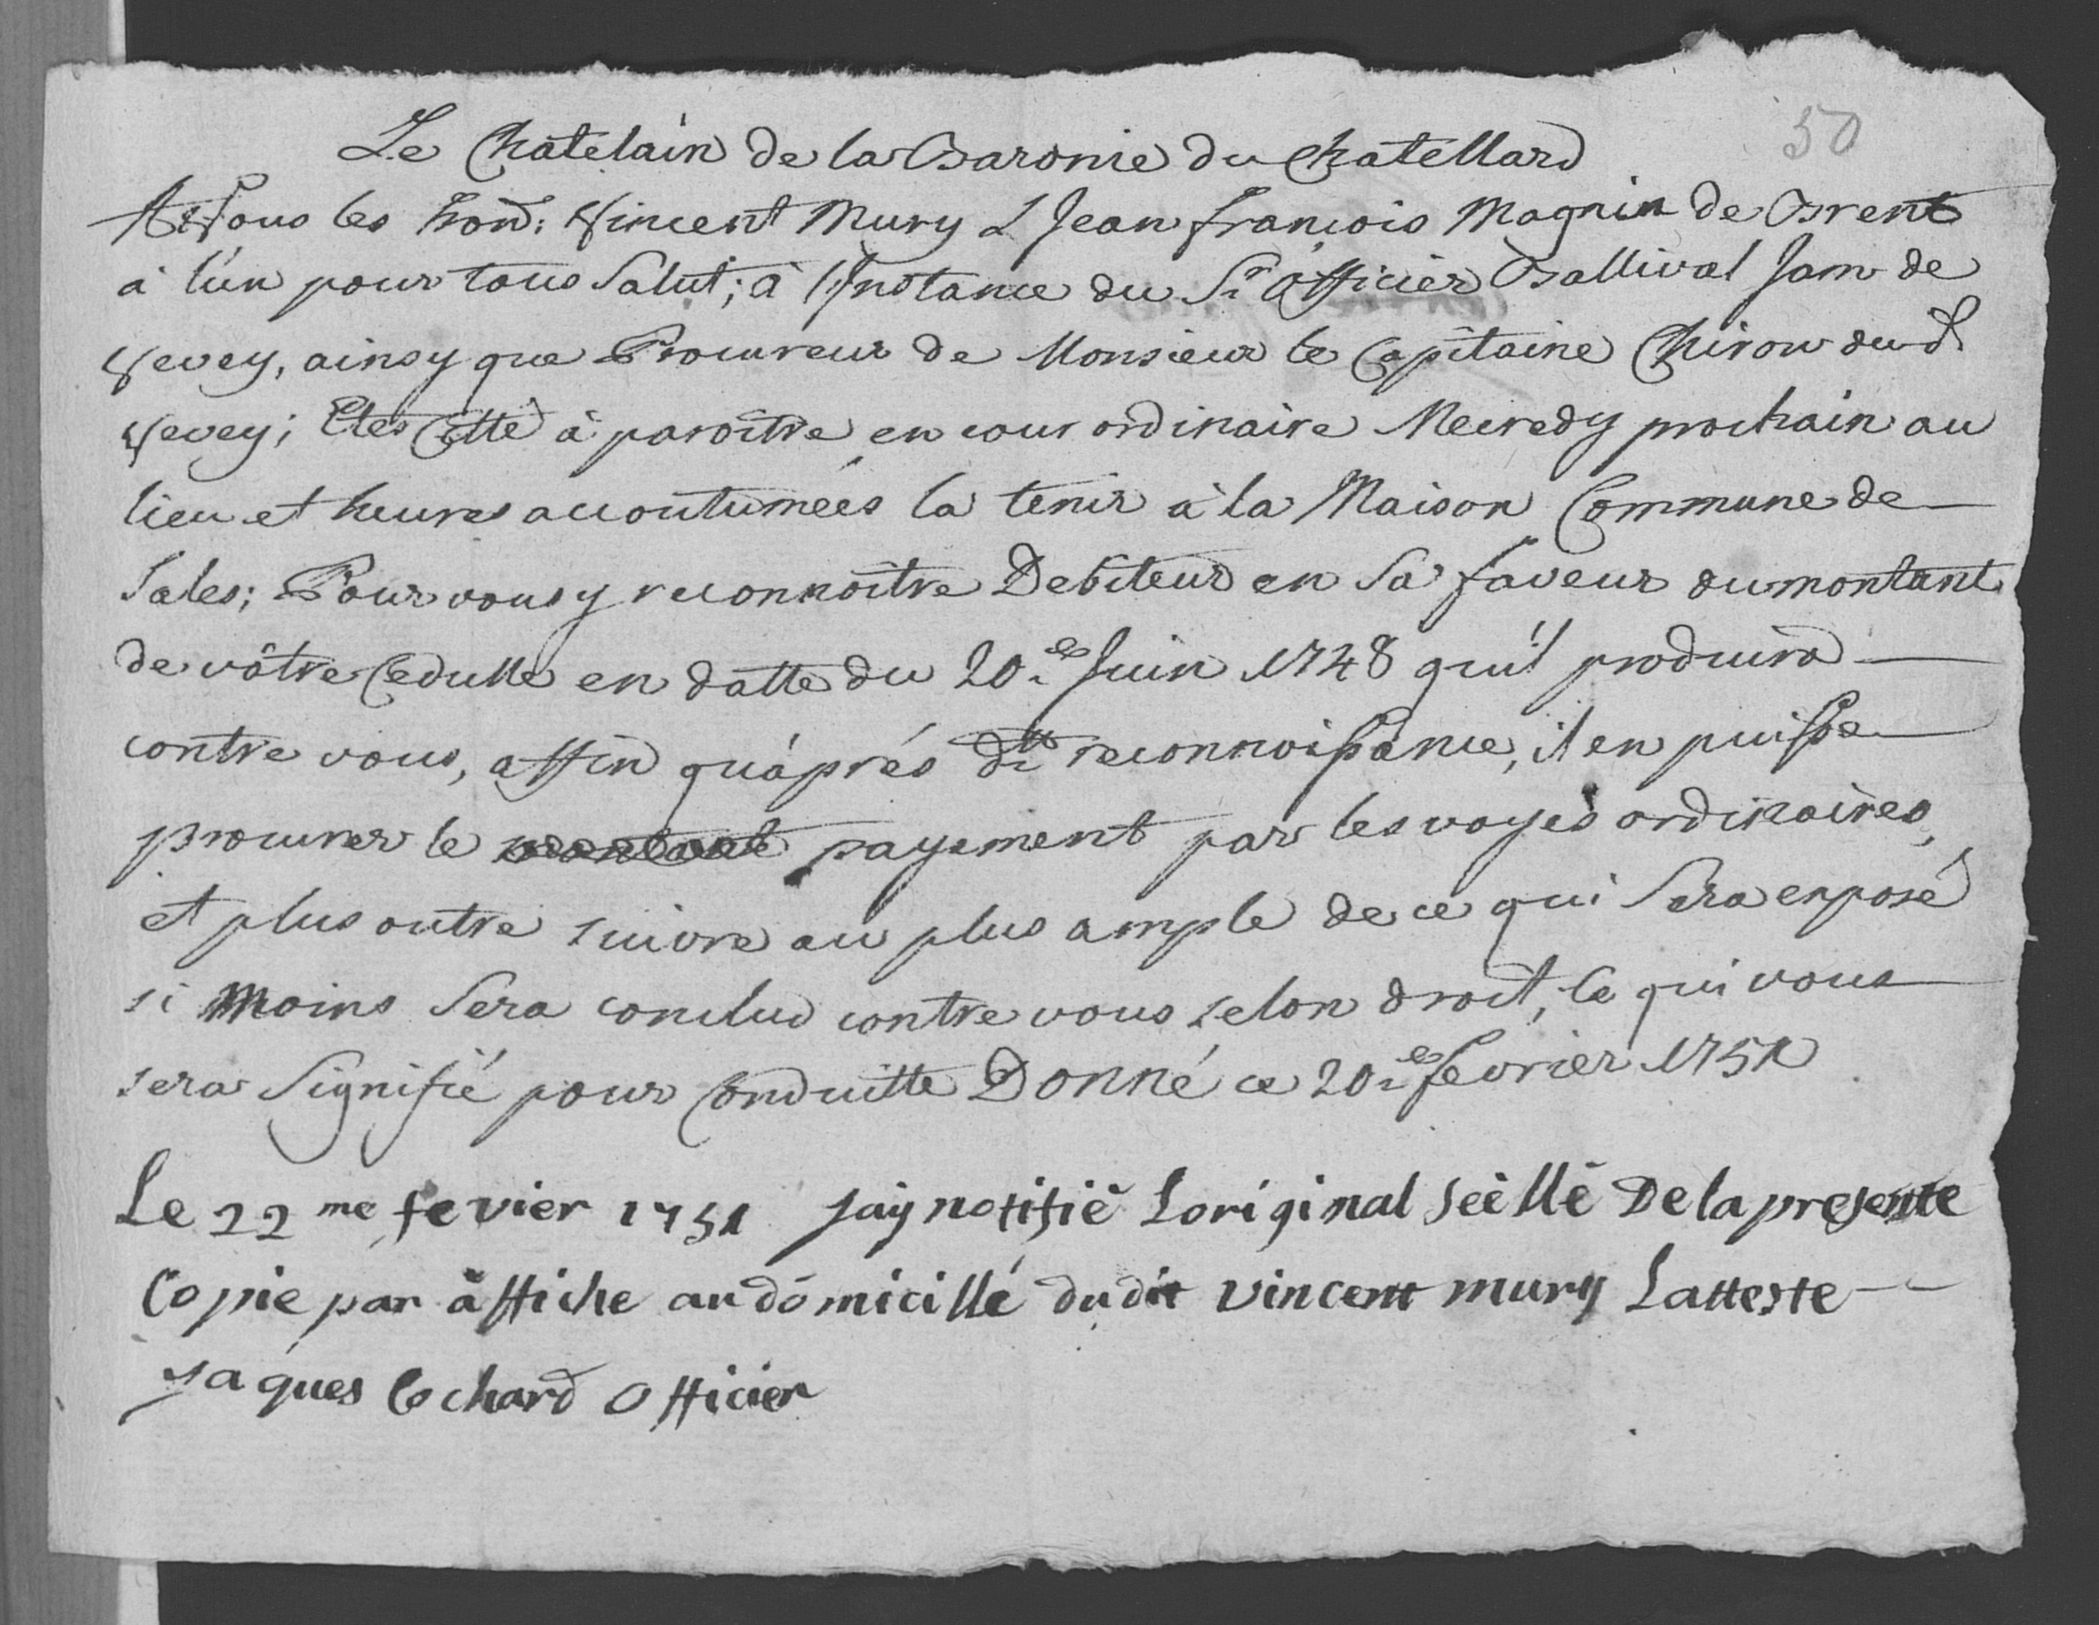 50
Le Chatelain de la Baronie du Chatellard
A Vous les hon: Vincent Mury & Jean François Magnin de Brent
à l'un pour tous Salut; à l'Instance du Sr Officier Ballival Jam de
Vevey, ainsy que Procureur de Monsieur le Capitaine Chirow dud.
Vevey; Etes Citté à paroître en cour ordinaire Mecredy prochain au
lieu et heures accoutumées la tenir à la Maison Commune de
Sales; Pour vous y reconnoître Debiteur en Sa faveur du montant
de vôtre Cedulle en datte du 20.e Juin 1748 qu'il produira
contre vous, affin qu'àprés dtte reconnoissance, il en puisse
procurer le payement par les voyes ordinaires,
et plus outre suivre au plus ample de ce qui Sera exposé
si Moins Sera conclud contre vous selon droit, ce qui vous
sera Signifié pour Conduitte Donné ce 20.e fevrier 1751
Le 22 me fevier 1751 jay notifié Loriginal Seéllé De la presente
Copie par affiche au domicille dudit vincent mury Latteste
Jaques Cochard Officier